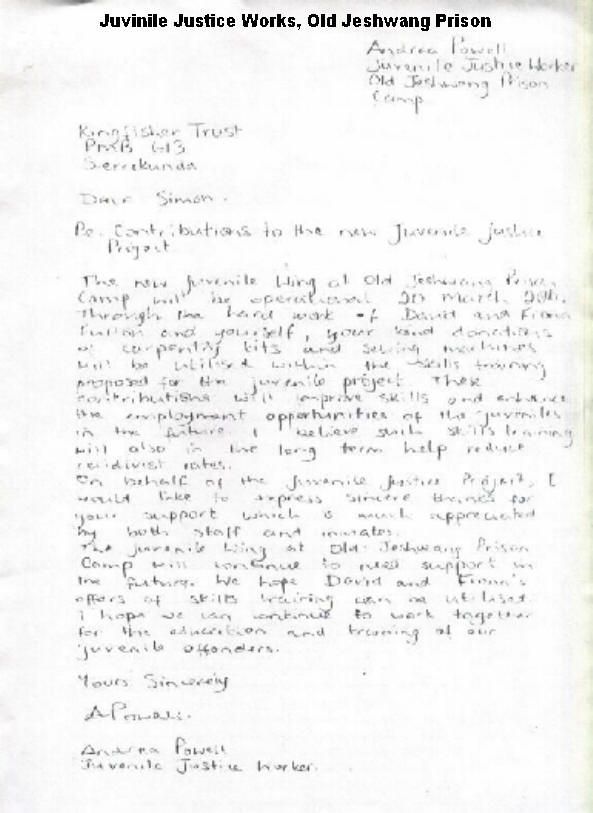 Juvinile Justice Works, Old Jeshwang Prison
Andrea Powell
Juvenile Justice Worker
Old Jeshwang Prison
Camp
Kingfisher Trust
PMB 613
Serrekunda
Dear Simon.
Re. Contributions to the new Juvenile justice
Project
The new juvenile Wing at Old Jeshwang Prison
Camp will be operational 20 March
Through the hard work of David and Fiona
and yourself, your kind donations
of carpentry kits and sewing machines
will be utilised within the skills training
proposed for the juvenile project These
contributions will improve skills and enhance
the employment opportunities of the juveniles
in the future. I believe such skills training
will also in the long term help reduce
recidivist rates.
On behalf of the Juvenile Justice Project, I
would like to express sincere thanks for
your support which is much appreciated
by both staff and inmates.
The juvenile Wing at Old Jeshwang Prison
Camp will continue to need support in
the future. We hope David and Fiona's
offers of skills training can be utilised.
I hope we can continue to work together
for the education and training of our
juvenile offenders.
Yours Sincerely
APowell.
Andrea Powell
Juvenile Justice Worker.